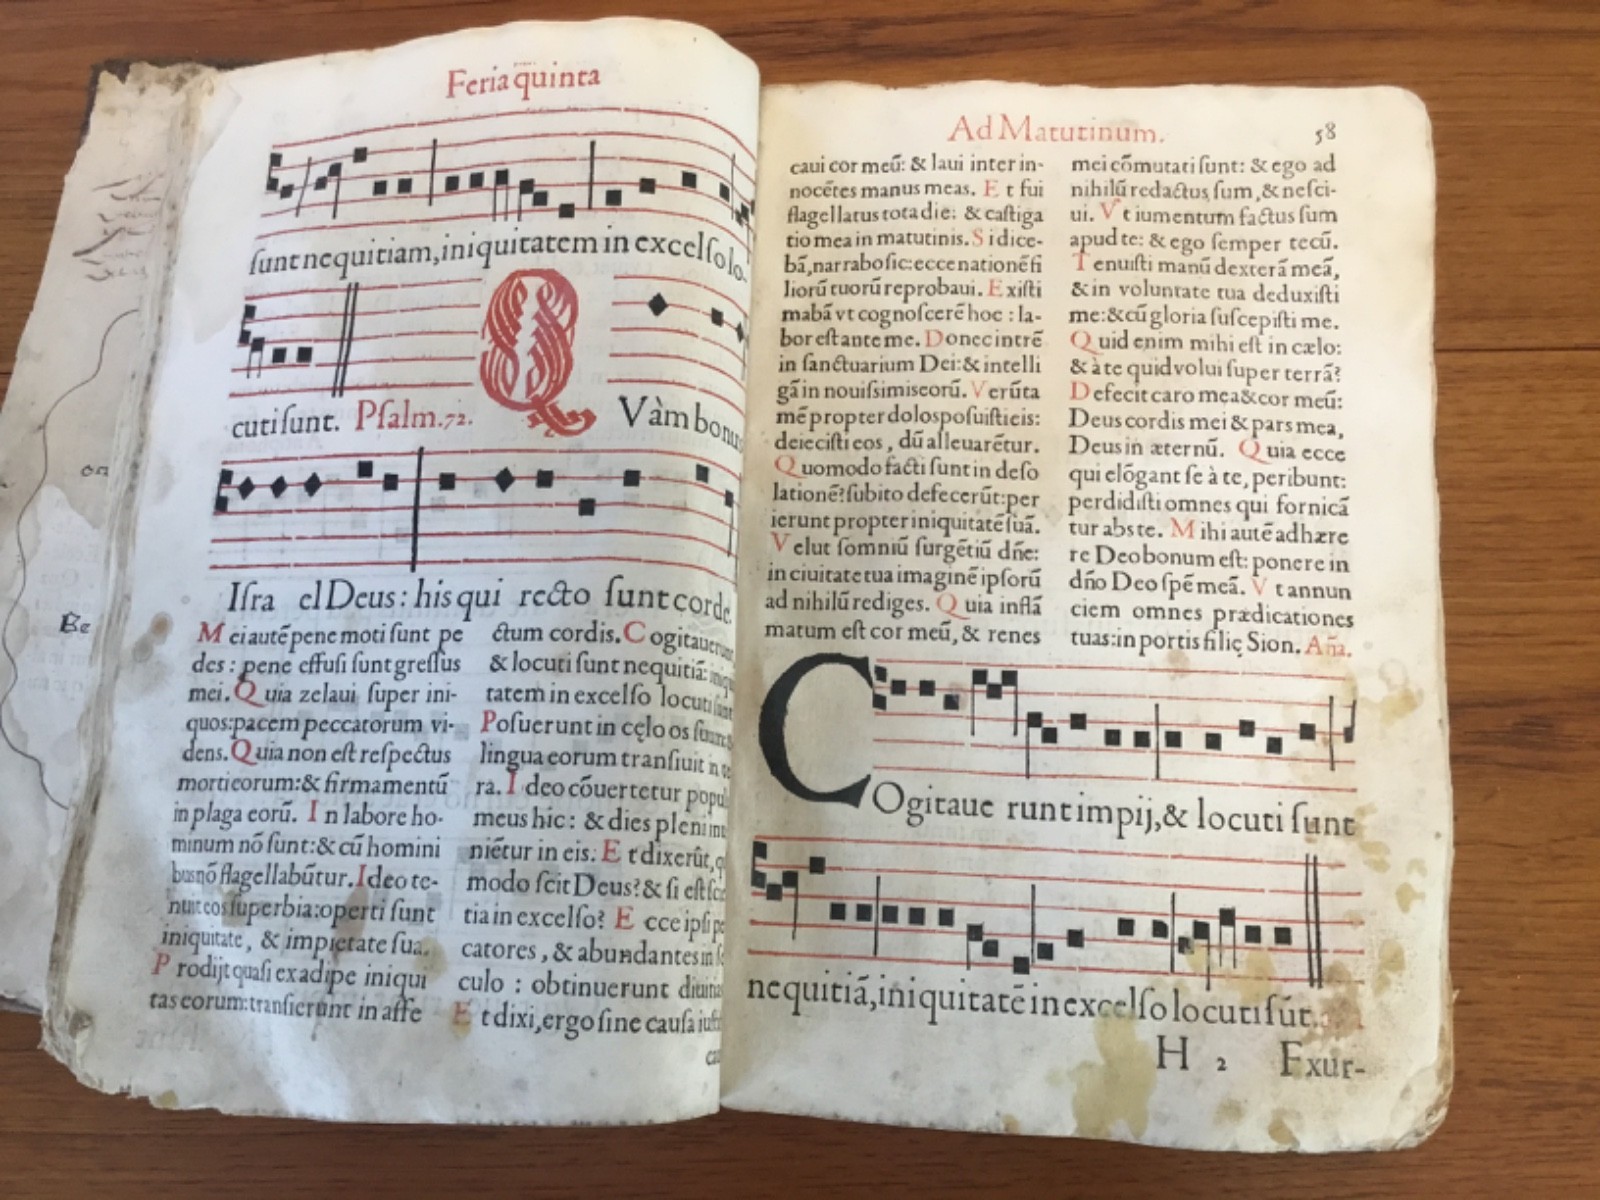 Feria quinta
sunt nequitiam, iniquitatem in excelso lo-
cuti sunt. Psalm. 72. QVàm bonus
Isra el Deus: his qui recto sunt corde.
Mei autē pene moti sunt pe
des: pene effusi sunt gressus
mei. Quia zelaui super ini-
quos: pacem peccatorum vi-
dens. Quia non est respectus
morti eorum: & firmamentū
in plaga eorū. In labore ho-
minum nō sunt: & cū homini
bus nō flagellabūtur. Ideo te-
nuit eos superbia: operti sunt
iniquitate, & impietate sua.
Prodijt quasi ex adipe iniqui
tas eorum: transierunt in affe
ctum cordis. Cogitauerunt,
& locuti sunt nequitiā: iniqui
tatem in excelso locuti sunt
Posuerunt in cęlo os suum: &
lingua eorum transiuit in te
ra. Ideo cōuertetur popul
meus hic: & dies pleni inue
niētur in eis. Et dixerūt, q
modo scit Deus? & si est sci
tia in excelso? Ecce ipsi pe
catores, & abundantes in se
culo: obtinuerunt diuitia
Et dixi, ergo sine causa iusti
Ad Matutinum. 58
caui cor meū: & laui inter in-
nocētes manus meas. Et fui
flagellatus tota die: & castiga
tio mea in matutinis. Si dice-
bā, narrabo sic: ecce nationē fi
liorū tuorū reprobaui. Existi
mabā vt cognoscerē hoc: la-
bor est ante me. Donec intrē
in sanctuarium Dei: & intelli
gā in nouissimis eorū. Verūta
mē propter dolos posuisti eis:
deiecisti eos, dū alleuarētur.
Quomodo facti sunt in deso
lationē? subito defecerūt: per
ierunt propter iniquitatē suā.
Velut somniū surgētiū dñe:
in ciuitate tua imaginē ipsorū
ad nihilū rediges. Quia inflā
matum est cor meū, & renes
mei cōmutati sunt: & ego ad
nihilū redactus sum, & nesci-
ui. Vt iumentum factus sum
apud te: & ego semper tecū.
Tenuisti manū dexterā meā,
& in voluntate tua deduxisti
me: & cū gloria suscepisti me.
Quid enim mihi est in cælo:
& à te quid volui super terrā?
Defecit caro mea & cor meū:
Deus cordis mei & pars mea,
Deus in æternū. Quia ecce
qui elōgant se à te, peribunt:
perdidisti omnes qui fornicā
tur abs te. Mihi autē adhære
re Deo bonum est: ponere in
dño Deo spē meā. Vt annun
ciem omnes prædicationes
tuas: in portis filię Sion. Aña.
COgitaue runt impij, & locuti sunt
nequitiā, iniquitatē in excelso locuti sūt.
H 2 Exur-